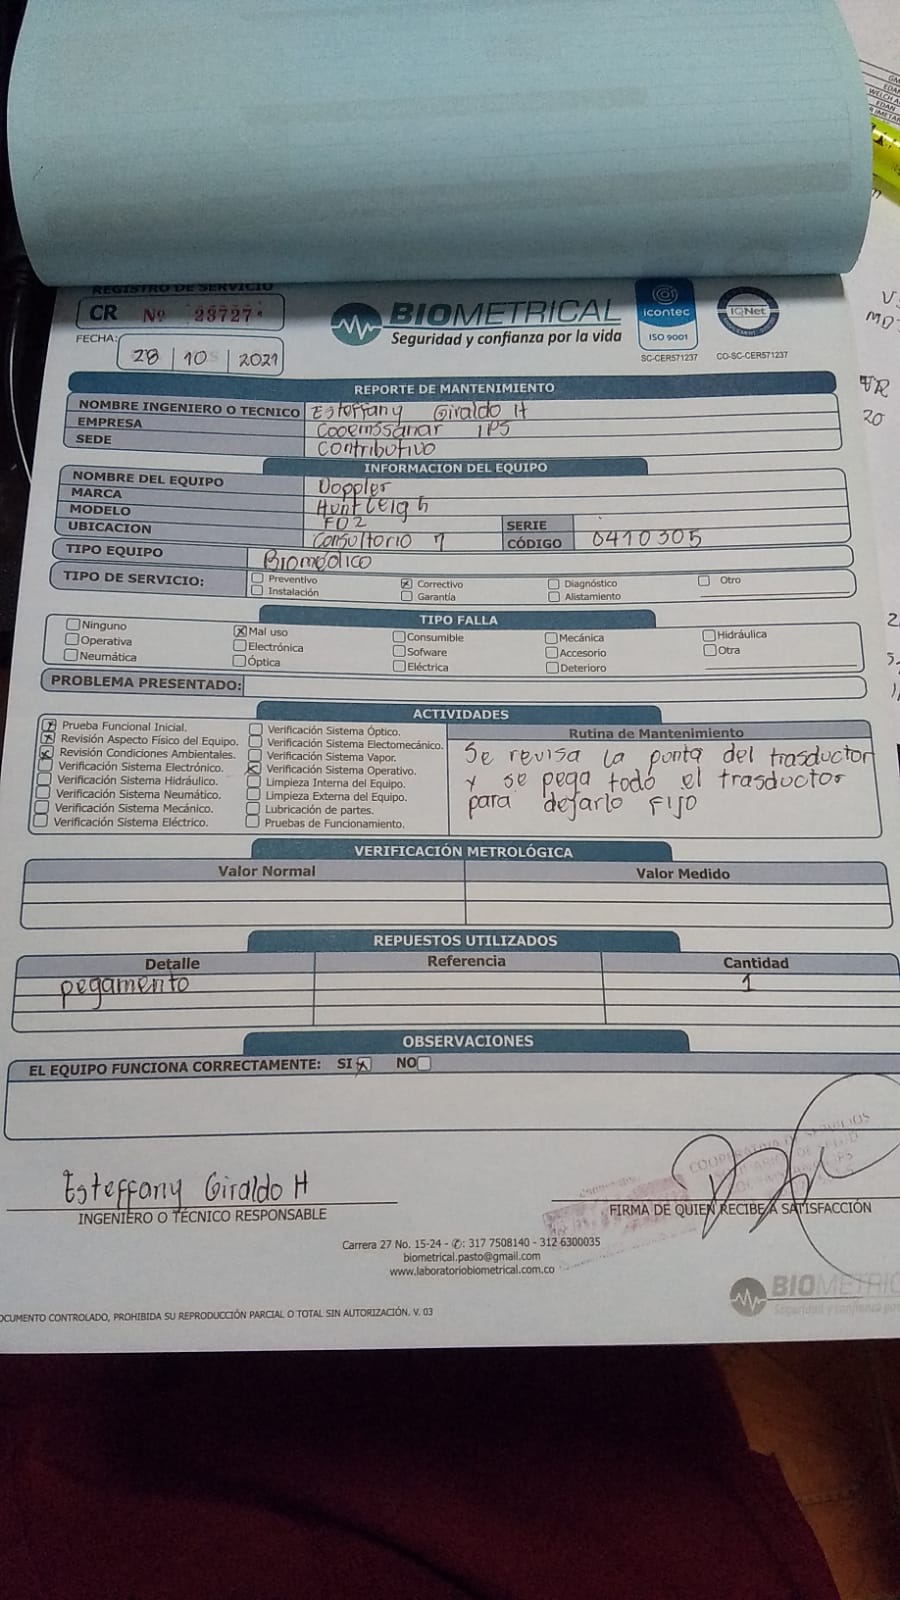 REGISTRO DE SERVICIO
CR Nº 28727
FECHA:
28 | 10 | 2021
BIOMETRICAL
Seguridad y confianza por la vida
icontec
ISO 9001
SC-CER571237
IQNet
CO-SC-CER571237
REPORTE DE MANTENIMIENTO
NOMBRE INGENIERO O TECNICO Esteffany Giraldo H
EMPRESA Cooemssanar IPS
SEDE Contributivo
INFORMACION DEL EQUIPO
NOMBRE DEL EQUIPO Doppler
MARCA Huntleigh
MODELO FD2 SERIE
UBICACION Consultorio 7 CÓDIGO 0410305
TIPO EQUIPO Biomédico
TIPO DE SERVICIO: Preventivo Correctivo Diagnóstico Otro
Instalación Garantía Alistamiento
TIPO FALLA
Ninguno Mal uso Consumible Mecánica Hidráulica
Operativa Electrónica Sofware Accesorio Otra
Neumática Óptica Eléctrica Deterioro
PROBLEMA PRESENTADO:
ACTIVIDADES
Prueba Funcional Inicial.
Revisión Aspecto Físico del Equipo.
Revisión Condiciones Ambientales.
Verificación Sistema Electrónico.
Verificación Sistema Hidráulico.
Verificación Sistema Neumático.
Verificación Sistema Mecánico.
Verificación Sistema Eléctrico.
Verificación Sistema Óptico.
Verificación Sistema Electomecánico.
Verificación Sistema Vapor.
Verificación Sistema Operativo.
Limpieza Interna del Equipo.
Limpieza Externa del Equipo.
Lubricación de partes.
Pruebas de Funcionamiento.
Rutina de Mantenimiento
Se revisa la punta del trasductor
y se pega todo el trasductor
para dejarlo Fijo
VERIFICACIÓN METROLÓGICA
Valor Normal Valor Medido
REPUESTOS UTILIZADOS
Detalle Referencia Cantidad
pegamento 1
OBSERVACIONES
EL EQUIPO FUNCIONA CORRECTAMENTE: SI NO
Esteffany Giraldo H
INGENIERO O TÉCNICO RESPONSABLE
FIRMA DE QUIEN RECIBE A SATISFACCIÓN
Carrera 27 No. 15-24 - ✆: 317 7508140 - 312 6300035
biometrical.pasto@gmail.com
www.laboratoriobiometrical.com.co
BIOMETRIC
OCUMENTO CONTROLADO, PROHIBIDA SU REPRODUCCIÓN PARCIAL O TOTAL SIN AUTORIZACIÓN. V. 03